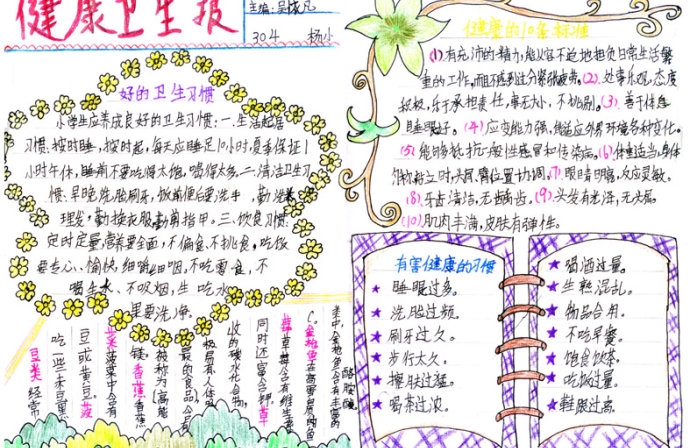 健康卫生报
主编:吴依凡
304 杨小
好的卫生习惯
小学生应养成良好的卫生习惯:一.生活起居
习惯:按时睡,按时起,每天应睡足10小时,夏季保证1
小时午休,睡前不要吃得太饱,喝得太多.二.清洁卫生习
惯:早晚洗脸刷牙,饭前便后要洗手,勤洗
理发,勤换衣服勤剪指甲。三.饮食习惯:
定时定量,营养要全面,不偏食,不挑食,吃饭
要专心、愉快,细嚼细咽,不吃零食,不
喝生水、不吸烟,生吃水
果要洗净。
健康的10条标准
(1).有充沛的精力,能从容不迫地担负日常生活繁
重的工作,而且不感到过分紧张疲劳。(2).处事乐观,态度
积极,乐于承担责任,事无大小,不挑剔。(3).善于休息
睡眠好。(4)应变能力强,能适应外界环境各种变化。
(5).能够抵抗一般性感冒和传染病。(6).体重适当,身体
匀称,站立时,头、肩、臂位置协调。(7).眼睛明亮,反应灵敏。
(8).牙齿清洁,无齿病齿。(9).头发有光泽,无头屑。
(10).肌肉丰满,皮肤有弹性。
有害健康的习惯
睡眠过多。
洗脸过频。
刷牙过久。
步行太久。
擦肤过猛。
喝茶过浓。
喝酒过量。
生熟混乱。
物品合用。
不吃早餐。
饱食饮茶。
吃饭过量。
鞋跟过高。
类中,金枪鱼含有丰富的
C。金枪鱼在高蛋白质的鱼
莓草莓含有维生素
同时还富含钾。草
收的碳水化合物,
极易有人体吸
最的食品,含有
被称为富能
镁。香蕉,香蕉
菜菠菜中含有
豆或黄豆。菠
吃一些赤豆黑
豆类经常